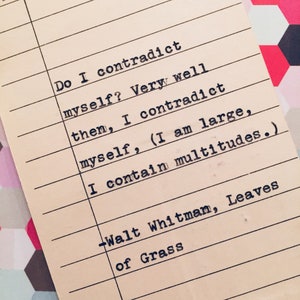 Do I contradict
myself? Very well
then, I contradict
myself, (I am large,
I contain multitudes.)
-Walt Whitman, Leaves
of Grass